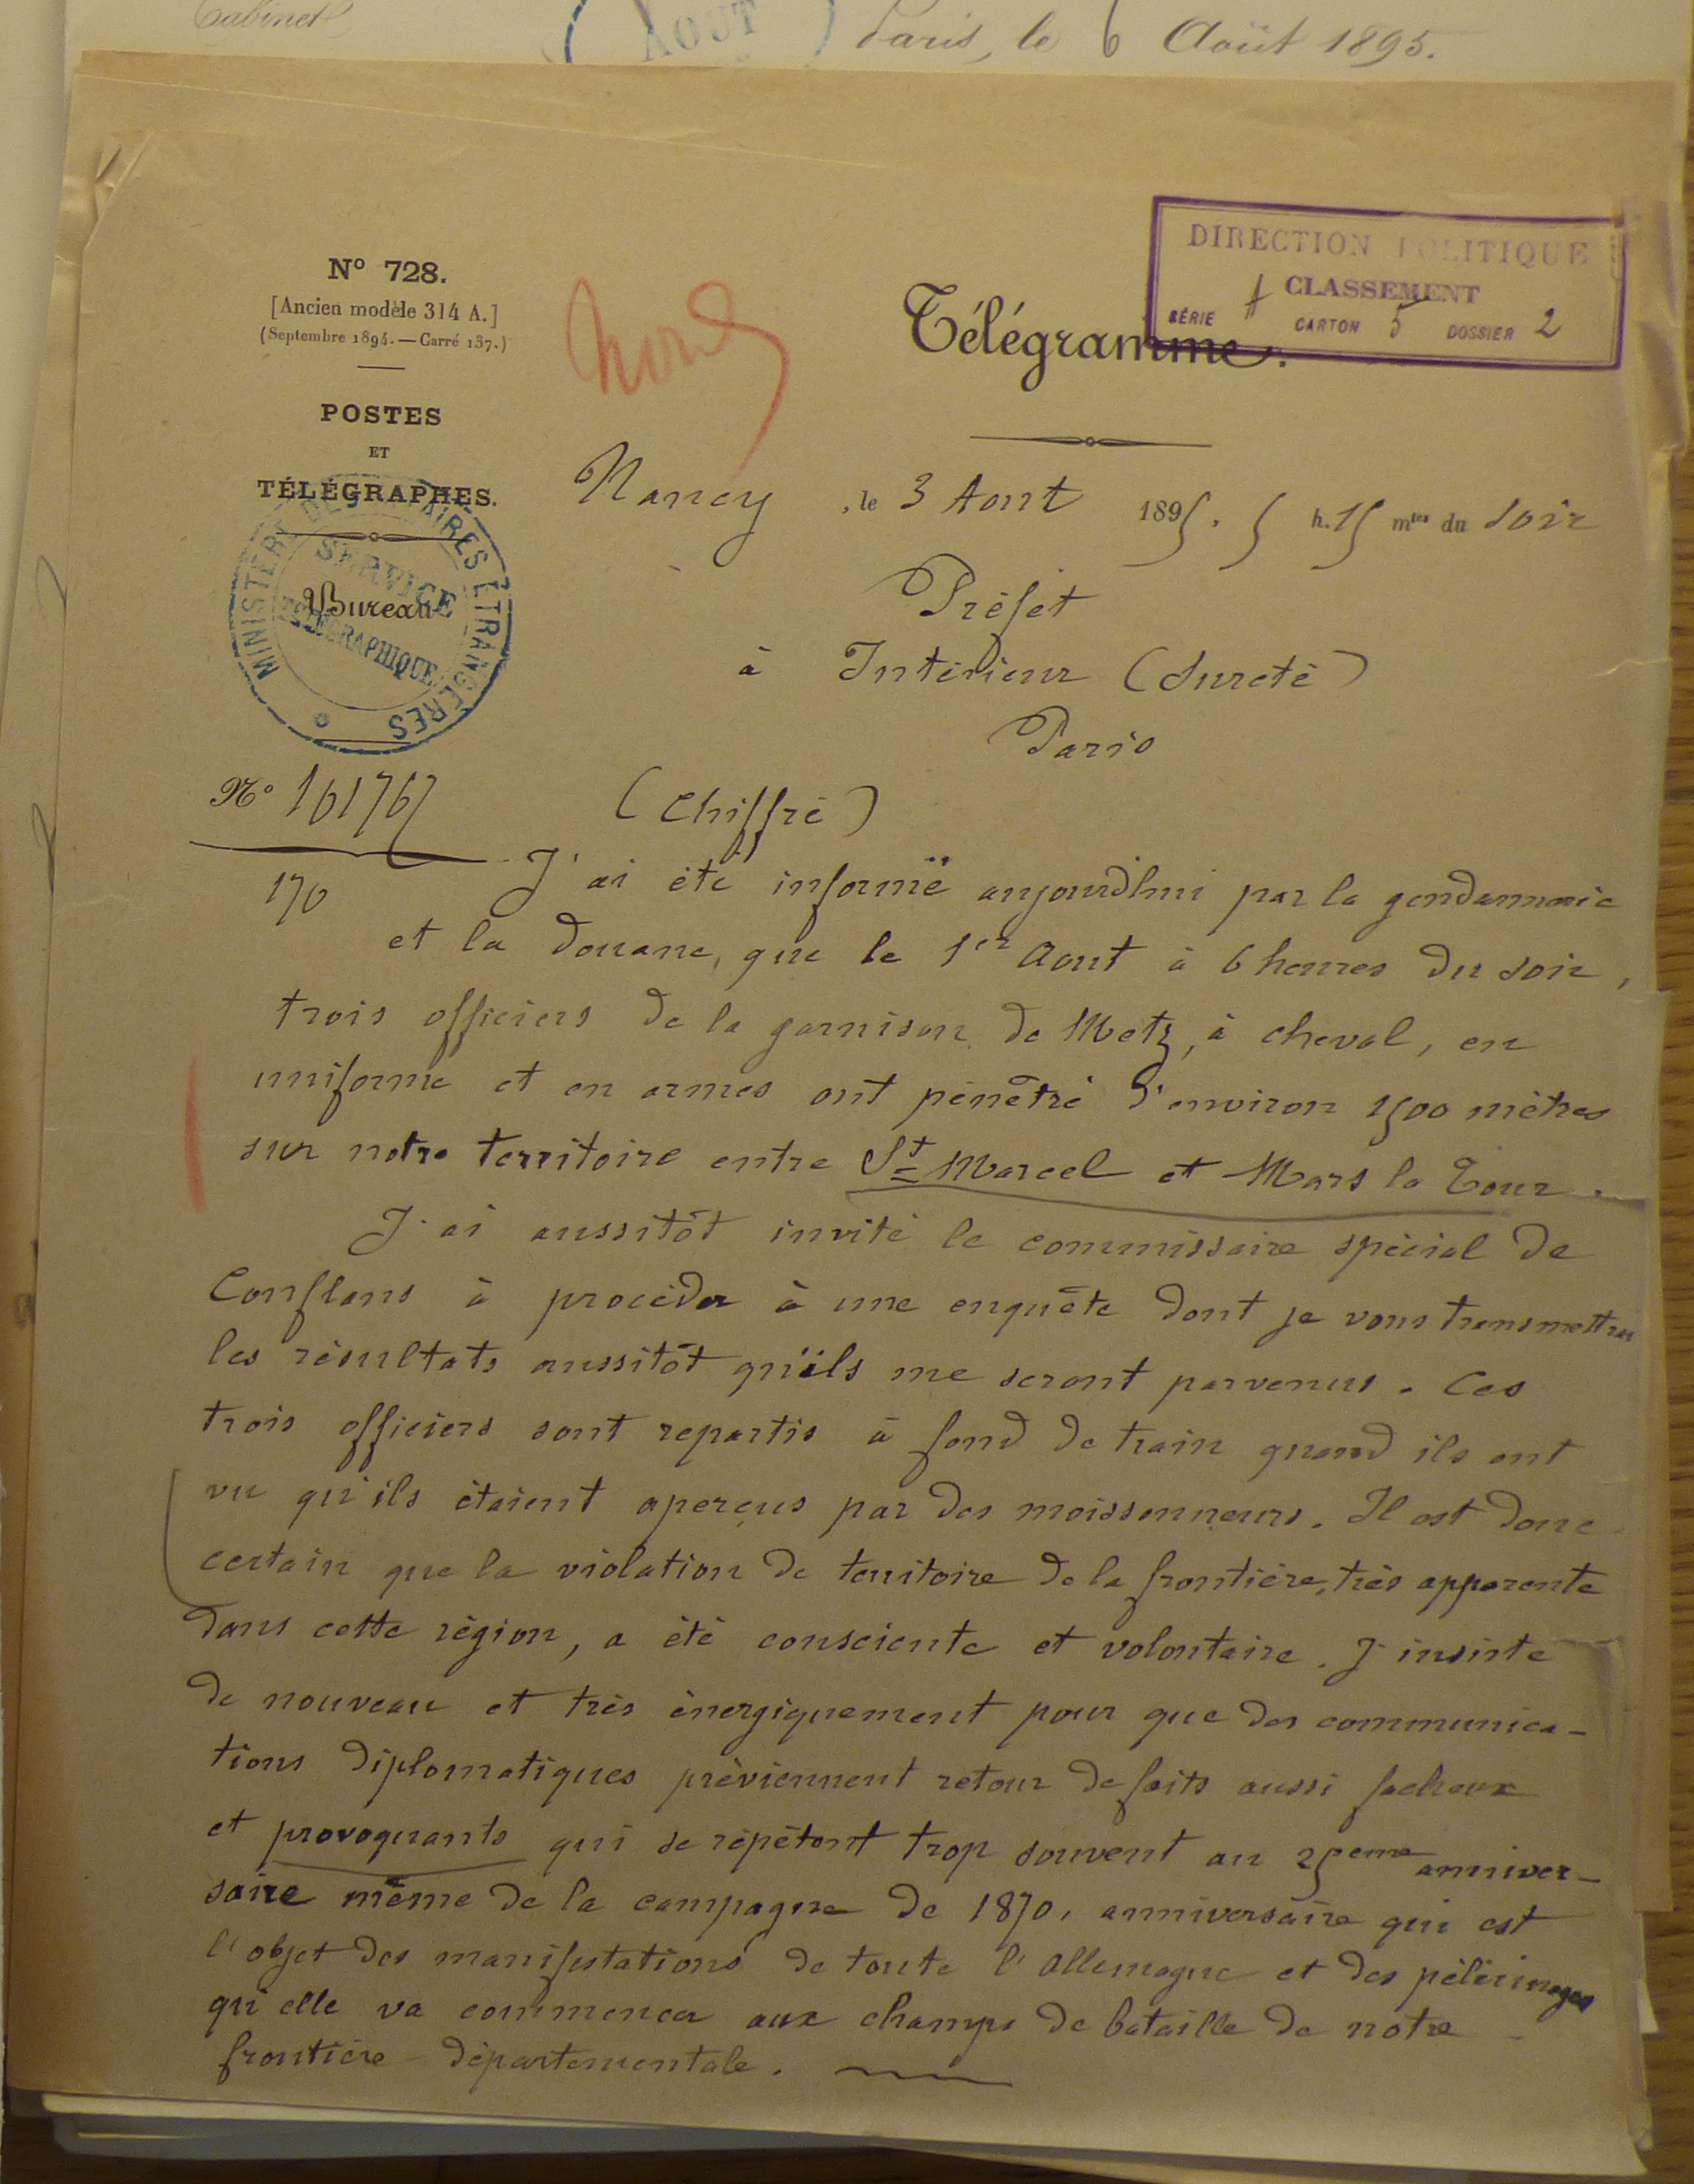 Cabinet
AOUT
Paris, le 6 Août 1895.
DIRECTION POLITIQUE
CLASSEMENT
SÉRIE A CARTON 5 DOSSIER 2
N° 728.
[Ancien modèle 314 A.]
(Septembre 1894. — Carré 137.)
POSTES
ET
TÉLÉGRAPHES.
Bureau
MINISTERE DES AFFAIRES ETRANGERES
SERVICE
TÉLÉGRAPHIQUE
Nord
Télégramme.
Nancy, le 3 Aout 1895. 5 h. 15 mtes du soir
Préfet
à Intérieur (Sureté)
Paris
N°
170
(Chiffré)
J'ai été informé aujourd'hui par la gendarmerie
et la douane, que le 1er Aout à 6 heures du soir,
trois officiers de la garnison de Metz, à cheval, en
uniforme et en armes ont pénétré d'environ 1500 mètres
sur notre territoire entre St Marcel et Mars la Tour.
J'ai aussitôt invité le commissaire spécial de
Conflans à procéder à une enquête dont je vous transmettrai
les résultats aussitôt qu'ils me seront parvenus. Ces
trois officiers sont repartis à fond de train quand ils ont
vu qu'ils étaient aperçus par des moissonneurs. Il est donc
certain que la violation de territoire de la frontière, très apparente
dans cette région, a été consciente et volontaire. J'insiste
de nouveau et très énergiquement pour que des communica-
tions diplomatiques préviennent retour de faits aussi facheux
et provoquants qui se répètent trop souvent au 25eme anniver-
saire même de la campagne de 1870, anniversaire qui est
l'objet des manifestations de toute l'Allemagne et des pèlerinages
qu'elle va commencer aux champs de bataille de notre
frontière départementale.